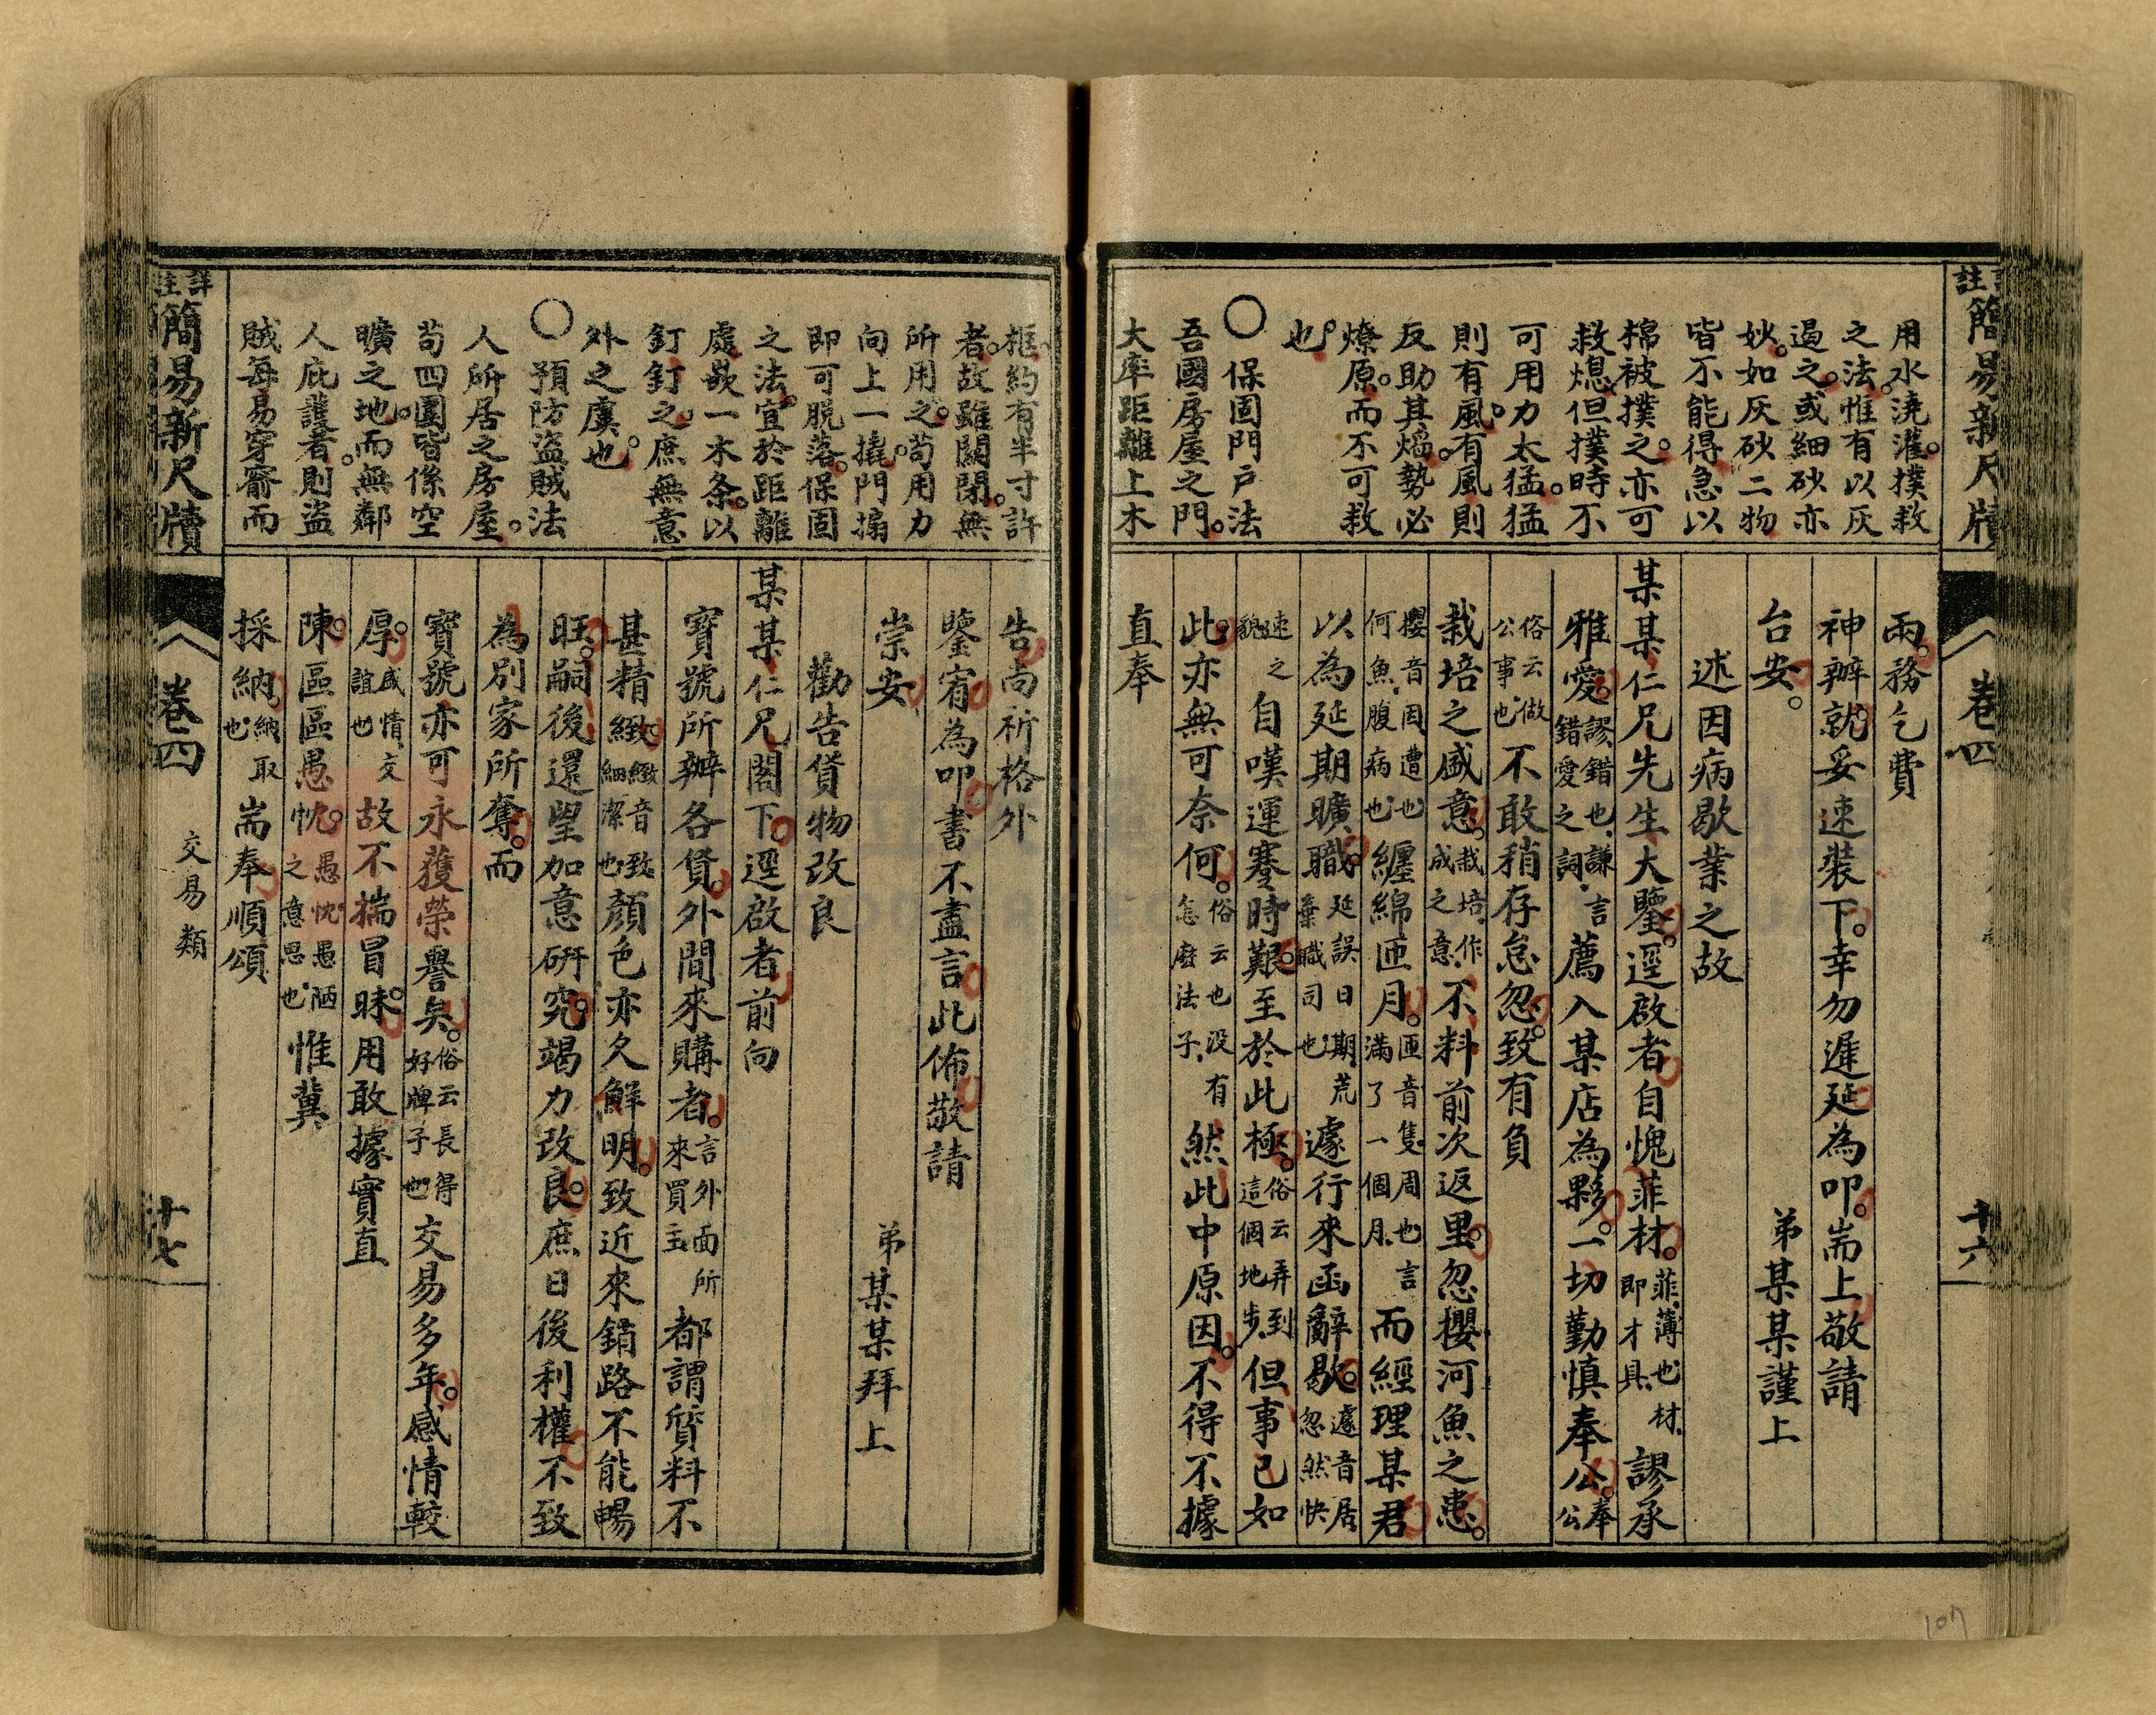 詳註簡易新尺牘 卷四 十六
用水澆灌。撲救
之法。惟有以灰
過之。或細砂亦
妙。如灰砂二物
皆不能得急以
棉被撲之。亦可
救熄但撲時不
可用力太猛。猛
則有風。有風則
反助其熖勢必
燎原。而不可救
也。
○保固門戶法
吾國房屋之門。
大率距離上木
兩。務乞費
神辦就。妥速裝下。幸勿遲延為叩。耑上敬請
台安。 弟某某謹上
述因病歇業之故
某某仁兄先生大鑒。逕啟者自愧菲材。菲薄也材即才具謬承
雅愛。謬錯也謙言錯愛之詞薦入某店為夥。一切勤慎奉公。奉公
俗云做公事也不敢稍存怠忽。致有負
栽培之盛意。栽培作成之意不料前次返里。忽攖河魚之患。
攖音因遭也何魚腹病也纏綿匝月。匝音隻周也言滿了一個月而經理某君
以為延期曠職。延誤日期荒棄職司也遽行來函辭歇。遽音居忽然快
速之貌自嘆運蹇時艱。至於此極。俗云弄到這個地步但事已如
此。亦無可奈何。俗云也没有怎麽法子然此中原因。不得不據
直奉
框約有半寸許
者。故雖關閉。無
所用之。茍用力
向上一撬。門搧
即可脫落。保固
之法。宜於距離
處嵌一木条。以
釘釘之。庶無意
外之虞也。
○預防盜賊法
人所居之房屋。
茍四圍皆係空
曠之地。而無鄰
人庇護者。則盜
賊每易穿窬而
告尚祈格外
鑒宥為叩書不盡言此佈敬請
崇安 弟某某拜上
勸告貨物改良
某某仁兄閣下。逕啟者前向
寶號所辦各貨。外間來購者。言外面所來買主都謂質料不
甚精緻。緻音致細潔也顏色亦欠鮮明。致近來銷路不能暢
旺。嗣後還望加意研究。竭力改良。庶日後利權不致
為別家所奪。而
寶號亦可永獲榮譽矣。俗云長得好牌子也交易多年。感情較
厚。感情交誼也故不揣冒昧。用敢據實直
陳。區區愚忱。愚忱愚陋之意思也惟冀
採納。納取也耑奉順頌
詳註簡易新尺牘 卷四 交易類 十七
107